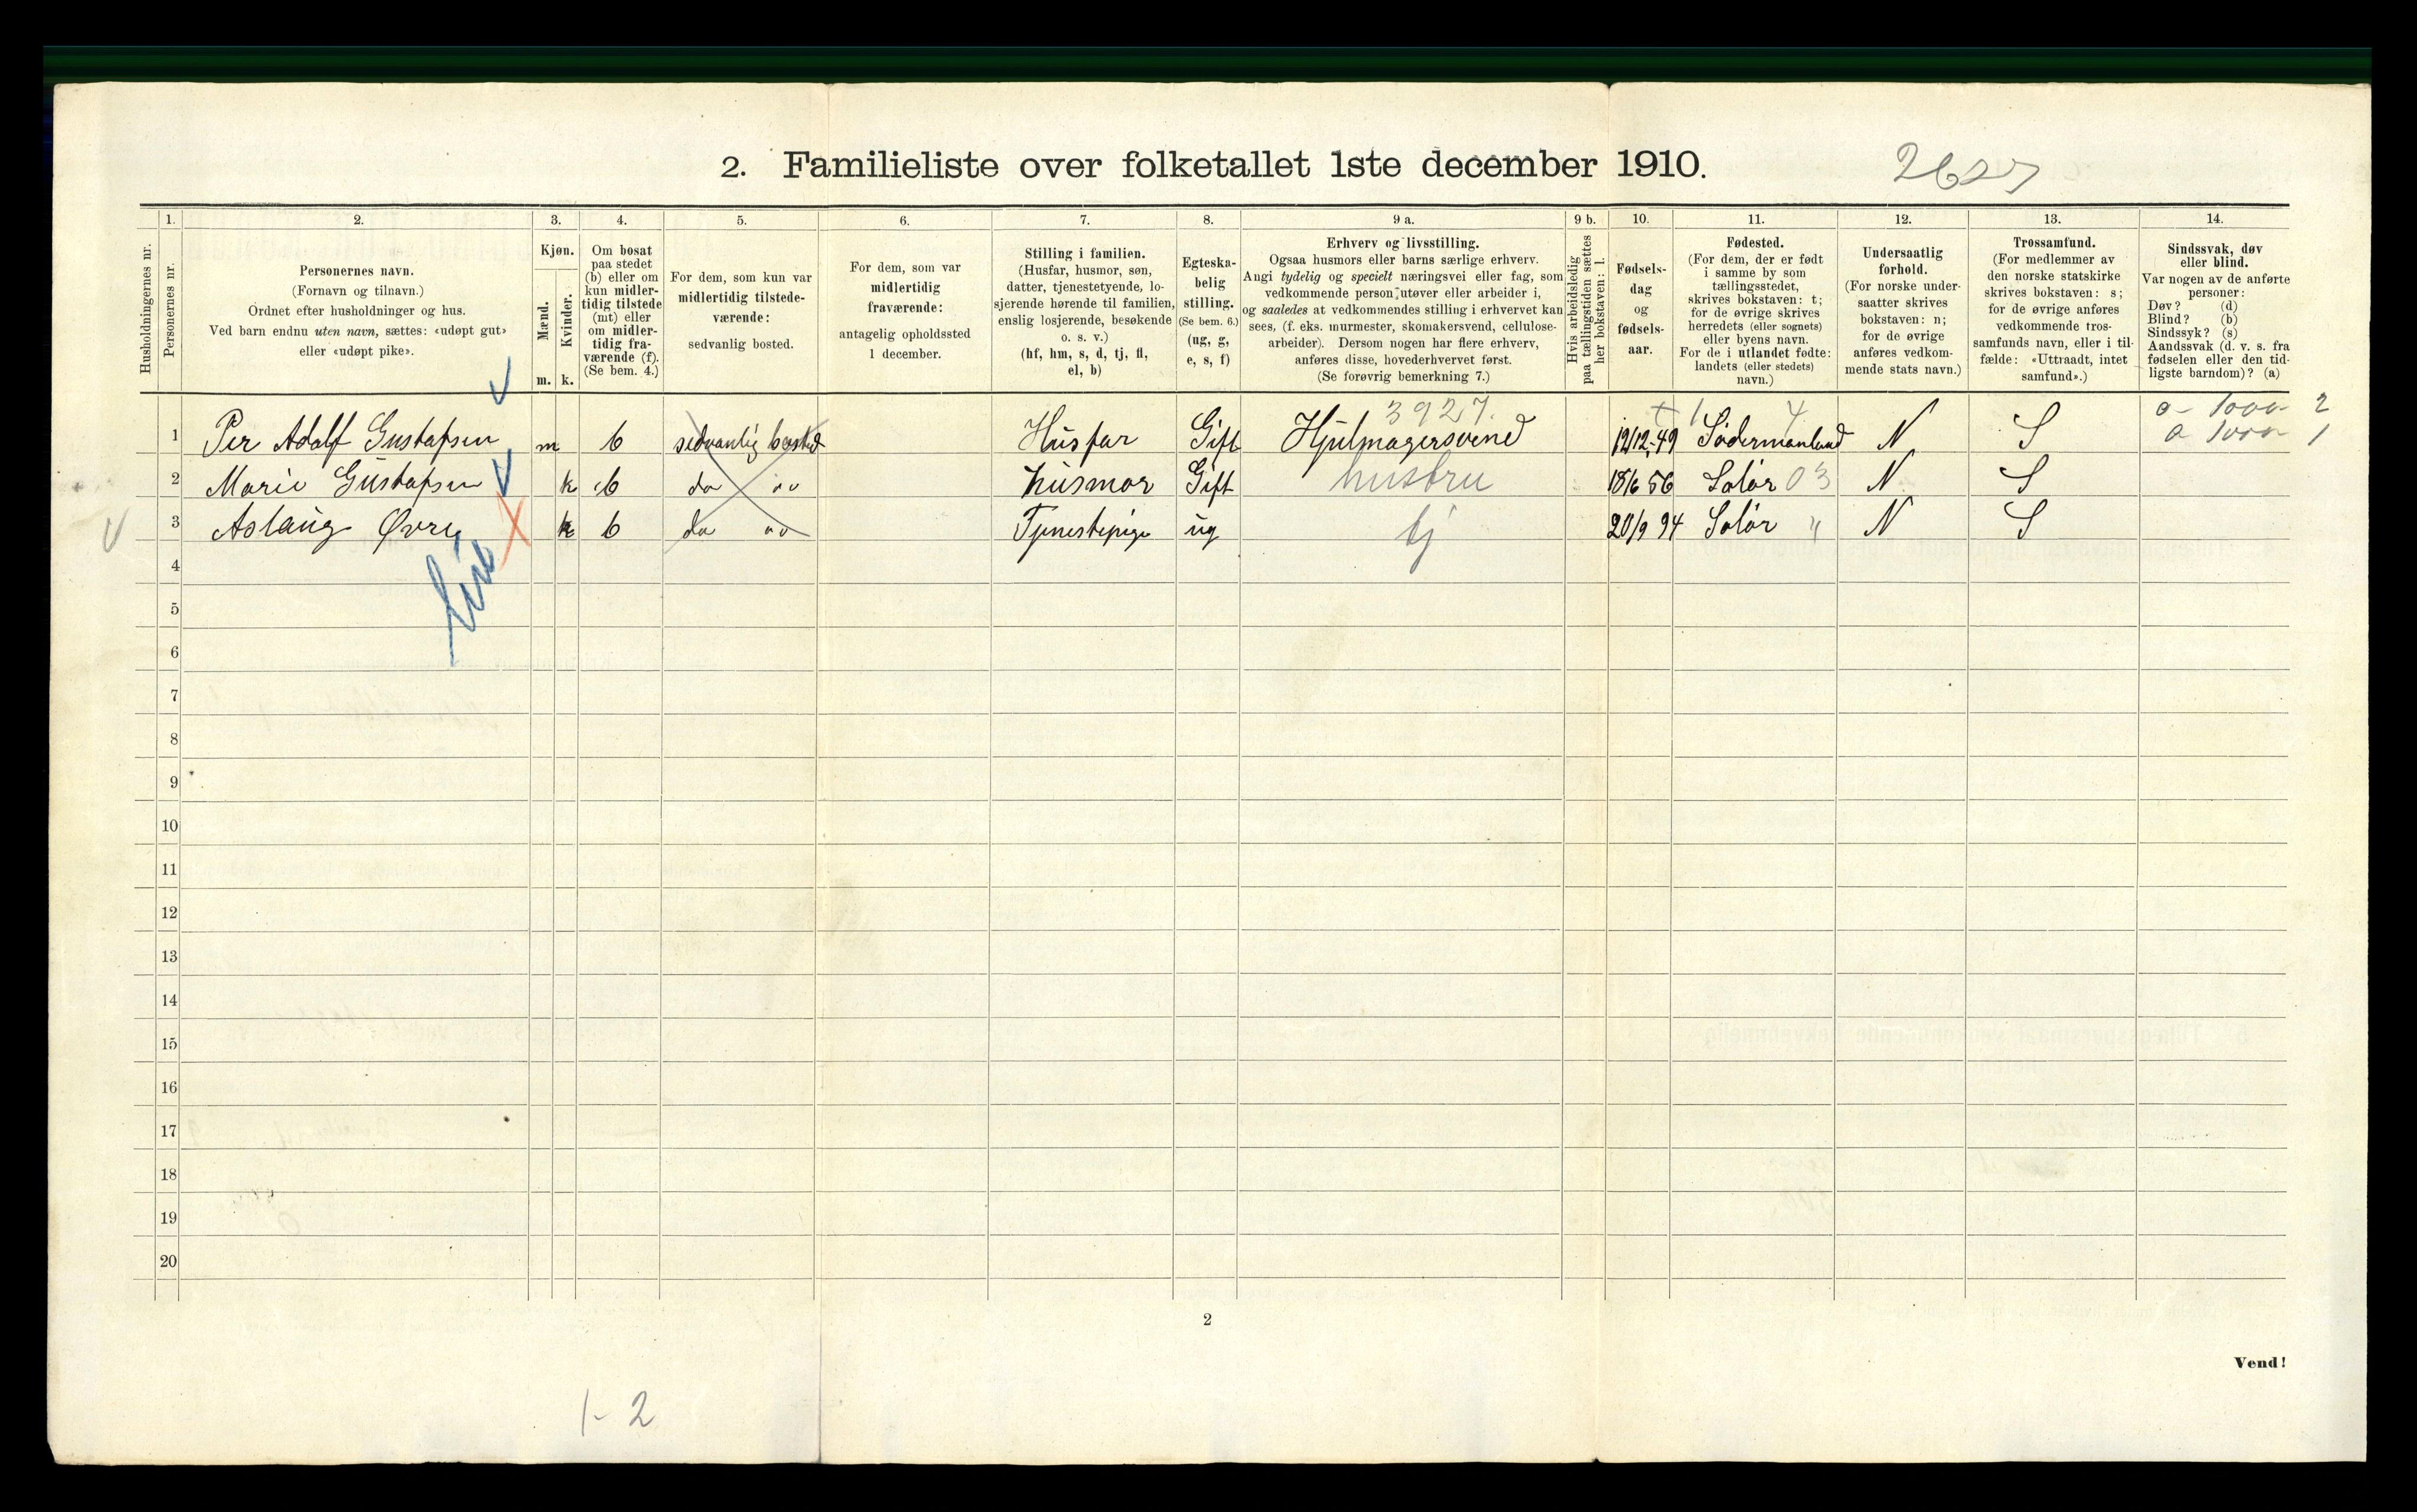 2. Familieliste over folketallet 1ste december 1910.
2627
Husholdningernes nr.
1.
Personernes nr.
2.
Personernes navn.
(Fornavn og tilnavn.)
Ordnet efter husholdninger og hus.
Ved barn endnu uten navn, sættes: «udøpt gut»
eller «udøpt pike».
3.
Kjøn.
Mænd.
Kvinder.
m. k.
4.
Om bosat
paa stedet
(b) eller om
kun midler-
tidig tilstede
(mt) eller
om midler-
tidig fra-
værende (f).
(Se bem. 4.)
5.
For dem, som kun var
midlertidig tilstede-
værende:
sedvanlig bosted.
6.
For dem, som var
midlertidig
fraværende:
antagelig opholdssted
1 december.
7.
Stilling i familien.
(Husfar, husmor, søn,
datter, tjenestetyende, lo-
sjerende hørende til familien,
enslig losjerende, besøkende
o. s. v.)
(hf, hm, s, d, tj, fl,
el, b)
8.
Egteska-
belig
stilling.
(Se bem. 6.)
(ug, g,
e, s, f)
9 a.
Erhverv og livsstilling.
Ogsaa husmors eller barns særlige erhverv.
Angi tydelig og specielt næringsvei eller fag, som
vedkommende person utøver eller arbeider i,
og saaledes at vedkommendes stilling i erhvervet kan
sees, (f. eks. murmester, skomakersvend, cellulose-
arbeider). Dersom nogen har flere erhverv,
anføres disse, hovederhvervet først.
(Se forøvrig bemerkning 7.)
9 b.
Hvis arbeidsledig
paa tællingstiden sættes
her bokstaven: l.
10.
Fødsels-
dag
og
fødsels-
aar.
11.
Fødested.
(For dem, der er født
i samme by som
tællingsstedet,
skrives bokstaven: t;
for de øvrige skrives
herredets (eller sognets)
eller byens navn.
For de i utlandet fødte:
landets (eller stedets)
navn.)
12.
Undersaatlig
forhold.
(For norske under-
saatter skrives
bokstaven: n;
for de øvrige
anføres vedkom-
mende stats navn.)
13.
Trossamfund.
(For medlemmer av
den norske statskirke
skrives bokstaven: s;
for de øvrige anføres
vedkommende tros-
samfunds navn, eller i til-
fælde: «Uttraadt, intet
samfund».)
14.
Sindssvak, døv
eller blind.
Var nogen av de anførte
personer:
Døv? (d)
Blind? (b)
Sindssyk? (s)
Aandssvak (d. v. s. fra
fødselen eller den tid-
ligste barndom)? (a)
3927. 4
1 Per Adolf Gustafsen m b sedvanlig bosted Husfar Gift Hjulmagersvend 12/12-49 Södermanland N S
2 Marie Gustafsen k b do Husmor Gift hustru 18/6 56 Solör 03 N S
3 Aslaug Øvre k b do Tjenestepige ug tj 20/9 94 Solör " N S
4
5
6
7
8
9
10
11
12
13
14
15
16
17
18
19
20
2
Vend!
1-2